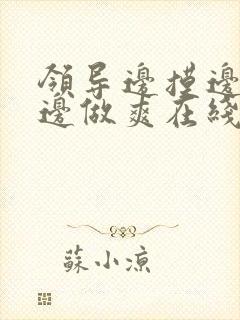 領导邊摸邊
邊做爽在綫
蘇小凉